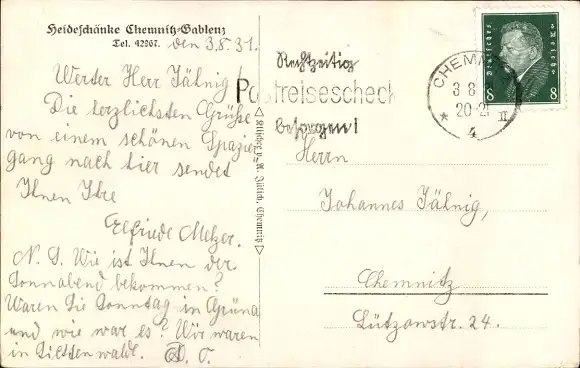 Heideschänke Chemnitz-Gablenz
Tel. 42967.
den 3.8.31.
Werter Herr Jähnig!
Die herzlichsten Grüße
von einem schönen Spazier
gang nach hier sendet
Ihnen Ihre
Elfriede Melzer.
N. S. Wie ist Ihnen der
Sonnabend bekommen?
Waren Sie Sonntag in Grüna
und wie war es? Wir waren
in
D. O.
Klischee u. A. Jülich, Chemnitz
Rechtzeitig
Postreisescheck
besorgen!
CHEMN
3 8
20-21 II
* 4
Deutsches Reich
8 8
Herrn
Johannes Jähnig,
Chemnitz
Lützowstr. 24.